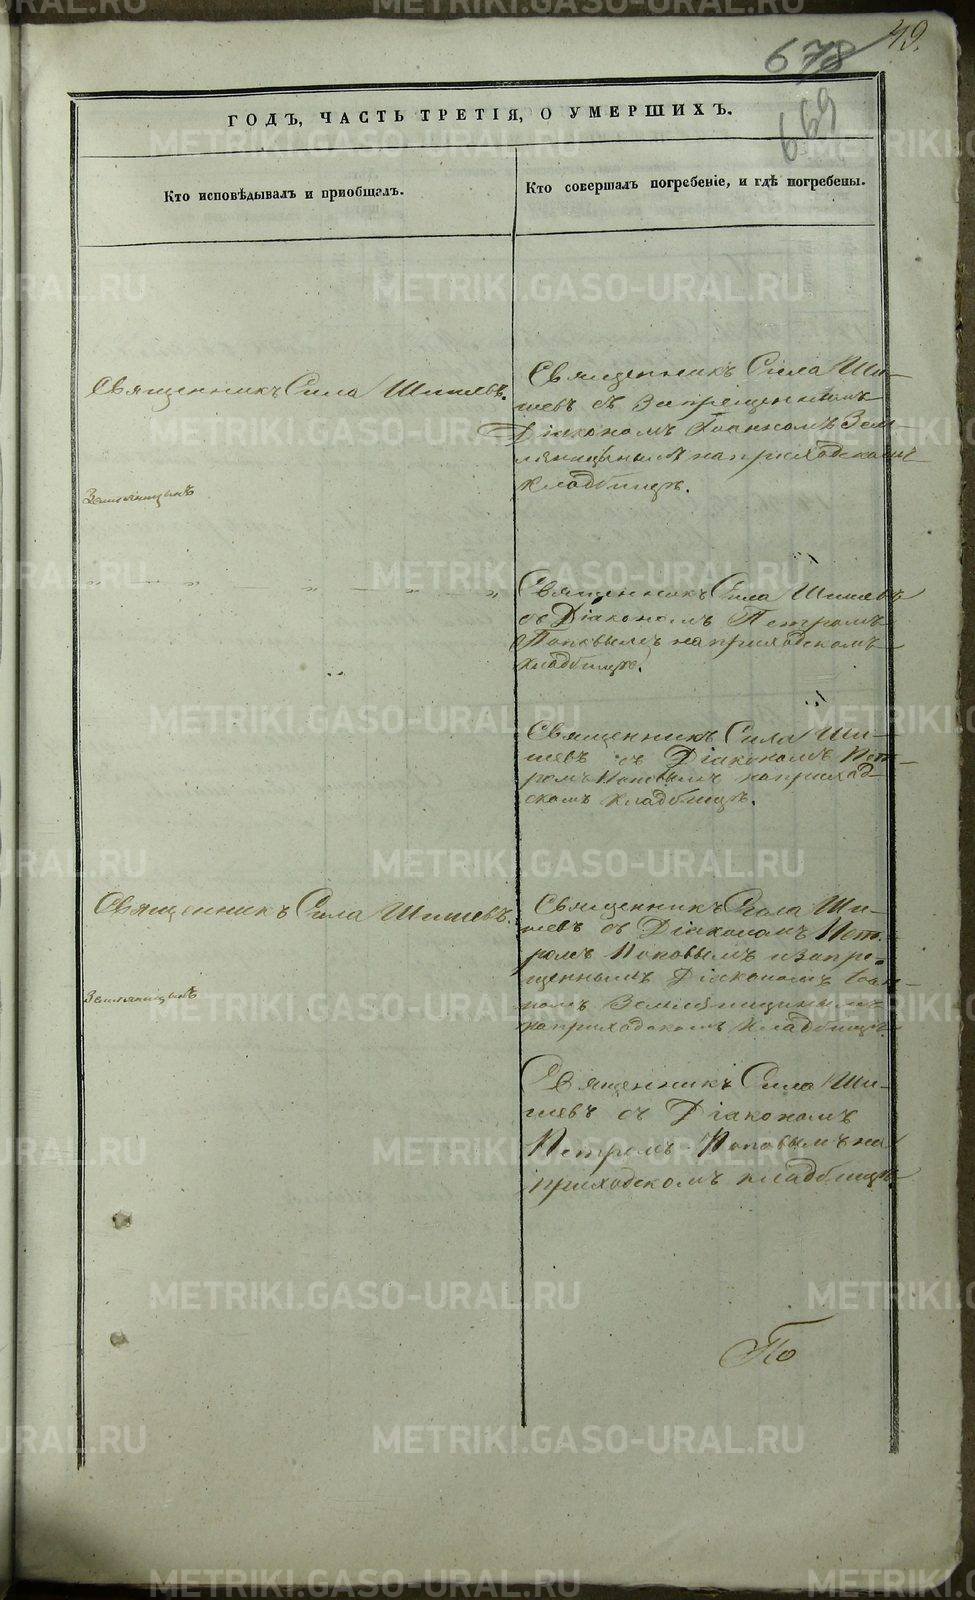 49.
678
669
ГОДЪ, ЧАСТЬ ТРЕТІЯ, О УМЕРШИХЪ.
Кто исповѣдывалъ и пріобщалъ.
Кто совершалъ погребеніе, и гдѣ погребены.
Священникъ Сила Шишевъ.
Земляницынъ
Священникъ Сила Ши-
шевъ съ Запрещеннымъ
Діакономъ Іоанномъ Зем-
ляницынымъ на приходскомъ
кладбищѣ.
" — " " — " — "
Священникъ Сила Шишевъ
съ Діакономъ Петромъ
Поповымъ на приходскомъ
кладбищѣ.
Священникъ Сила Ши-
шевъ съ Діакономъ Пет-
ромъ Поповымъ на приход-
скомъ кладбищѣ.
Священникъ Сила Шишевъ.
Земляницынъ
Священникъ Сила Ши-
шевъ съ Діакономъ Пет-
ромъ Поповымъ и запре-
щеннымъ Діакономъ Іоан-
номъ Земляницынымъ
на приходскомъ кладбищѣ.
Священникъ Сила Ши-
шевъ съ Діакономъ
Петромъ Поповымъ на
приходскомъ кладбищѣ.
По
METRIKI.GASO-URAL.RU